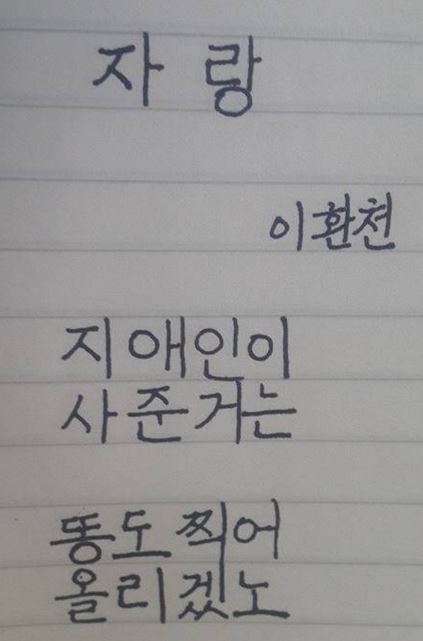 자랑
이환천
지애인이
사준거는
똥도찍어
올리겠노